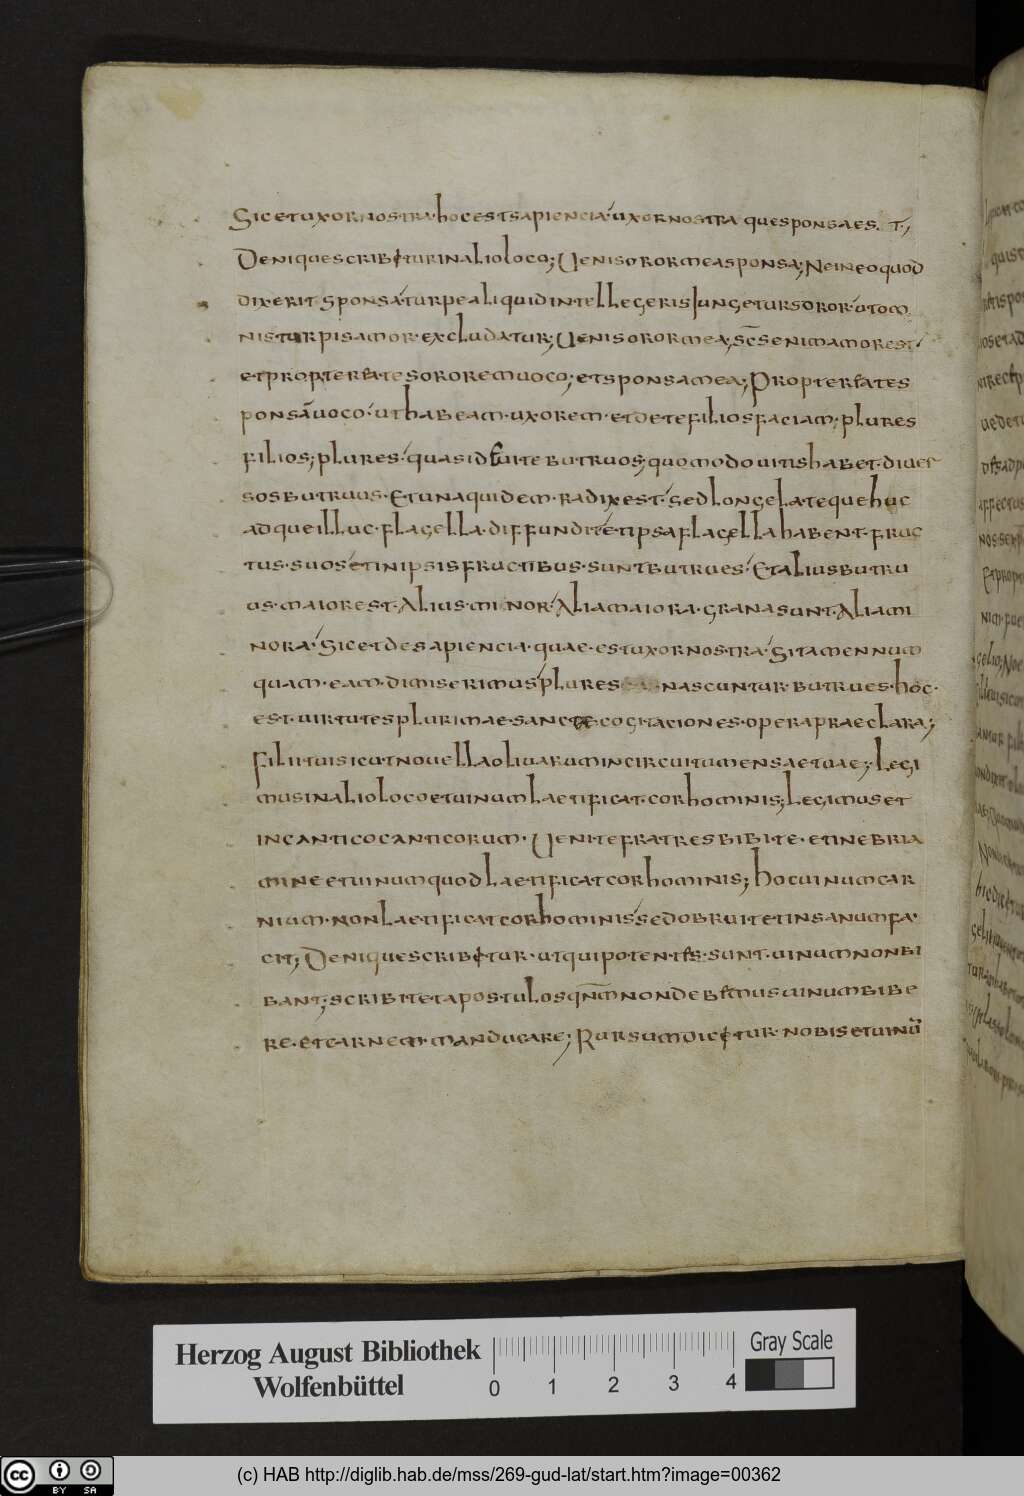 Sic et uxor nostra· hoc est sapiencia· uxor nostra que sponsa est·,
Denique scribitur in alio loco; Ueni soror mea sponsa; Ne in eo quod
dixerit sponsa· turpe aliquid intellegeris Iungetur soror· ut om
nis turpis amor· excludatur; Ueni soror mea, scs enim amor est·
et propterea te sororem uoco; et sponsa mea; Propterea te s
ponsā uoco· ut habeam· uxorem· et de te filios faciam; plures
filios; plures· quasi de uite butruos; quomodo uitis habet· diuer
sos butruus· Et una quidem· radix est· sed longe late que huc
adque illuc· flagella· diffundit· et ipsa flagella habent· fruc
tus· suos· et in ipsis fructibus· sunt butrues· Et alius butru
us· maior est· Alius· minor· Alia maiora· grana sunt· Alia mi
nora· Sic et de sapiencia· quae· est uxor nostra· Si tamen num
quam· eam· dimiserimus· plures nascuntur· butrues· hoc·
est· uirtutes plurimae· sanctae· cogitaciones· opera praeclara;
Filii tui sicut nouella oliuarum in circuitu mensae tuae; Legi
mus in alio loco et uinum laetificat· cor hominis; Legimus et
in cantico canticorum· Uenite fratres bibite· et inebria
mine et uinum quod laetificat cor hominis; Hoc uinum car
nium· non laetificat cor hominis· sed obruit et insanum fa·
cit; Denique scribitur· ut qui potentes· sunt· uinum non bi
bant; scribit et apostulos qnm non debemus uinum bibe
re· et carnem· manducare; Rursum dicitur· nobis et uinū
Herzog August Bibliothek
Wolfenbüttel
0 1 2 3 4
Gray Scale
cc BY SA
(c) HAB http://diglib.hab.de/mss/269-gud-lat/start.htm?image=00362